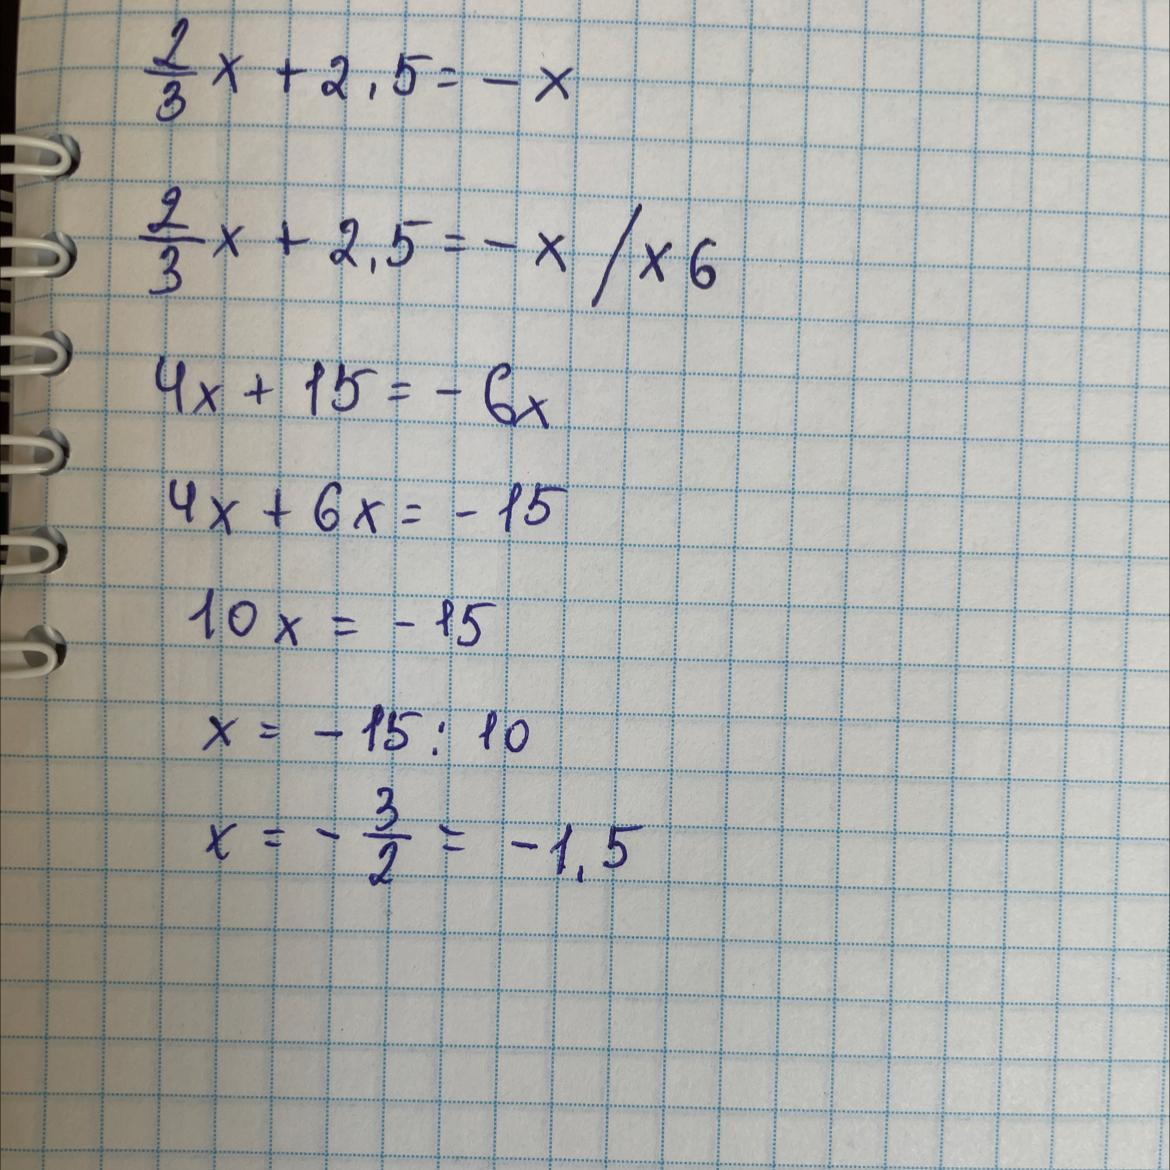 2/3 x + 2,5 = - x
2/3 x + 2,5 = - x / x 6
4x + 15 = - 6x
4x + 6x = - 15
10x = - 15
x = - 15 : 10
x = - 3/2 = - 1,5